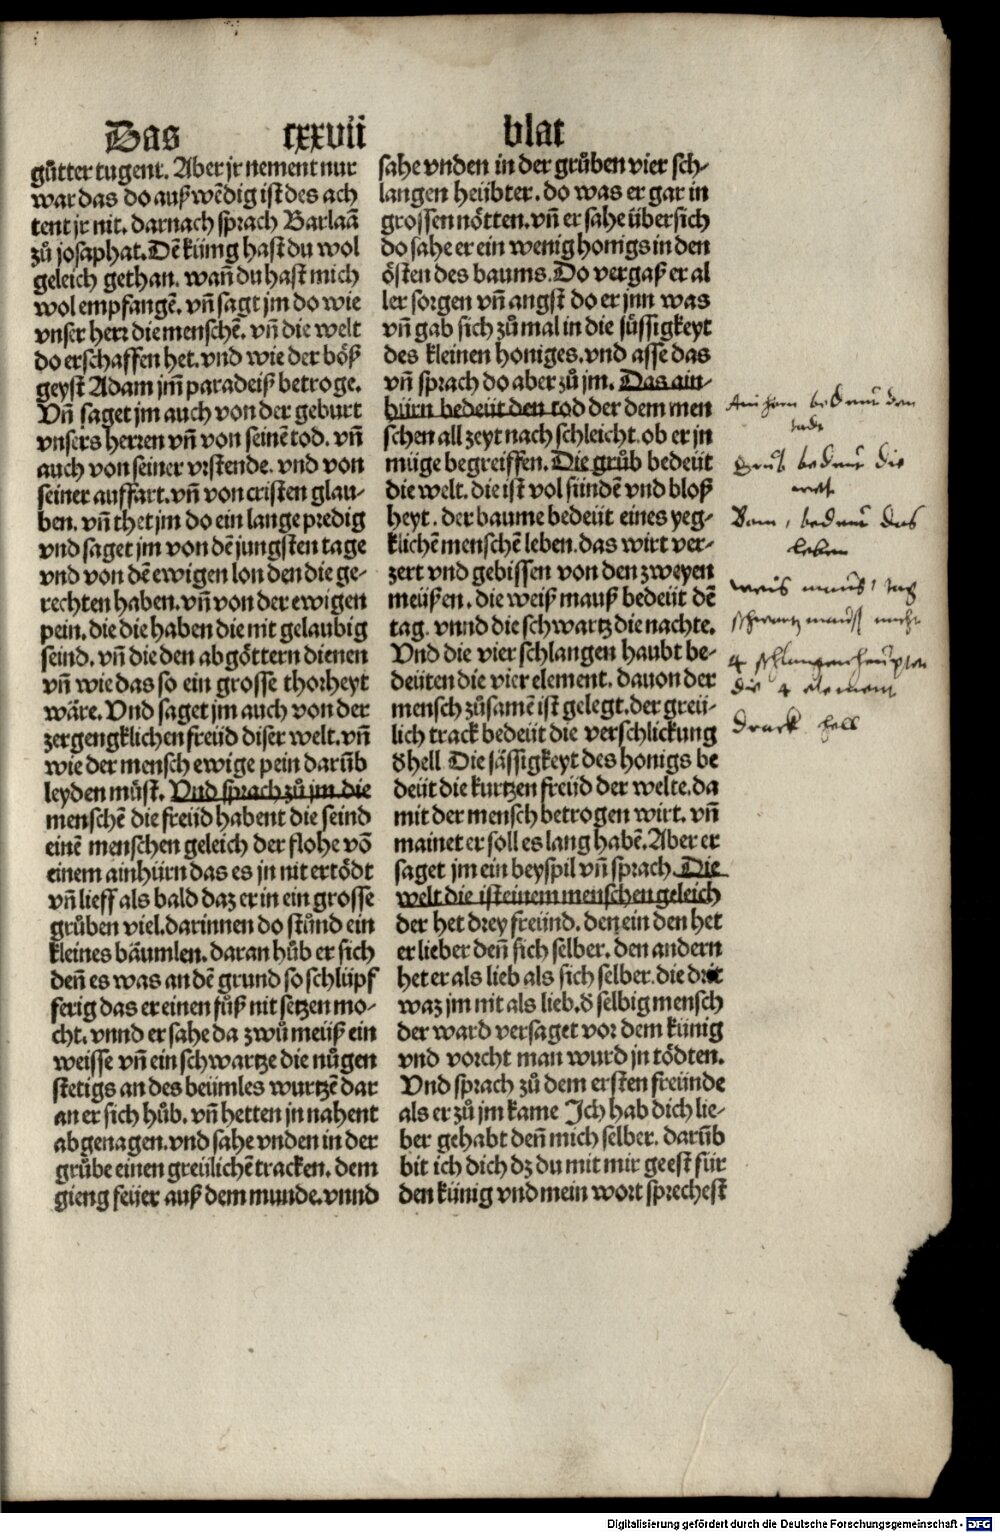 Das cxxvii blat
gůtter tugent. Aber jr nement nur
war das do außwẽdig ist des ach
tent jr nit. darnach sprach Barlaã
zů josaphat. Dẽ künig hast du wol
geleich gethan. wañ du hast mich
wol empfangẽ. vñ sagt jm do wie
vnser herr die menschẽ. vñ die welt
do erschaffen het. vnd wie der böß
geyst Adam jm̃ paradeiß betroge.
Vñ saget jm auch von der geburt
vnsers herren vñ von seinẽ tod. vñ
auch von seiner vrstende. vnd von
seiner auffart. vñ von cristen glau-
ben. vñ thet jm do ein lange predig
vnd saget jm von dẽ jungsten tage
vnd von dẽ ewigen lon den die ge-
rechten haben. vñ von der ewigen
pein. die die haben die nit gelaubig
seind. vñ die den abgöttern dienen
vñ wie das so ein grosse thorheyt
wäre. Vnd saget jm auch von der
zergengklichen freüd diser welt. vñ
wie der mensch ewige pein darũb
leyden můst. Vnd sprach zů jm die
menschẽ die freüd habent die seind
einẽ menschen geleich der flohe võ
einem ainhürn das es jn nit ertödt
vñ lieff als bald daz er in ein grosse
grůben viel. darinnen do stůnd ein
kleines bäumlen. daran hůb er sich
deñ es was an dẽ grund so schlüpf
ferig das er einen fůß nit setzen mo-
cht. vnnd er sahe da zwů meüß ein
weisse vñ ein schwartze die nůgen
stetigs an des beümles wurtzẽ dar
an er sich hůb. vñ hetten jn nahent
abgenagen. vnd sahe vnden in der
grůbe einen greülichẽ tracken. dem
gieng feüer auß dem munde. vnnd
sahe vnden in der grůben vier sch-
langen heübter. do was er gar in
grossen nötten. vñ er sahe übersich
do sahe er ein wenig honigs in den
östen des baums. Do vergaß er al
ler sorgen vñ angst do er jnn was
vñ gab sich zůmal in die süssigkeyt
des kleinen honiges. vnd asse das
vñ sprach do aber zů jm. Das ain-
hürn bedeüt den tod der dem men
schen all zeyt nach schleicht. ob er jn
müge begreiffen. Die grůb bedeüt
die welt. die ist vol sündẽ vnd bloß
heyt. der baume bedeüt eines yeg-
klichẽ menschẽ leben. das wirt ver-
zert vnd gebissen von den zweyen
meüßen. die weiß mauß bedeüt dẽ
tag. vnnd die schwartz die nachte.
Vnd die vier schlangen haubt be-
deüten die vier element. dauon der
mensch zůsamẽ ist gelegt. der greü-
lich track bedeüt die verschlickung
d hell Die sässigkeyt des honigs be
deüt die kurtzen freüd der welte. da
mit der mensch betrogen wirt. vñ
mainet er soll es lang habẽ. Aber er
saget jm ein beyspil vñ sprach. Die
welt die ist einem menschen geleich
der het drey freünd. den ein den het
er lieber deñ sich selber. den andern
het er als lieb als sich selber. die drit
waz jm nit als lieb. d selbig mensch
der ward versaget vor dem künig
vnd vorcht man wurd jn tödten.
Vnd sprach zů dem ersten freünde
als er zů jm kame Ich hab dich lie-
ber gehabt deñ mich selber. darũb
bit ich dich dz du mit mir geest für
den künig vnd mein wort sprechest
Ainhorn bedeut den
todt
Grub bedeut die
welt
Bom, bedeut das
leben
weis maus, tag
schwartz mauss nacht
4 schlangenheupter
die 4 element
Drack hell
Digitalisierung gefördert durch die Deutsche Forschungsgemeinschaft - DFG